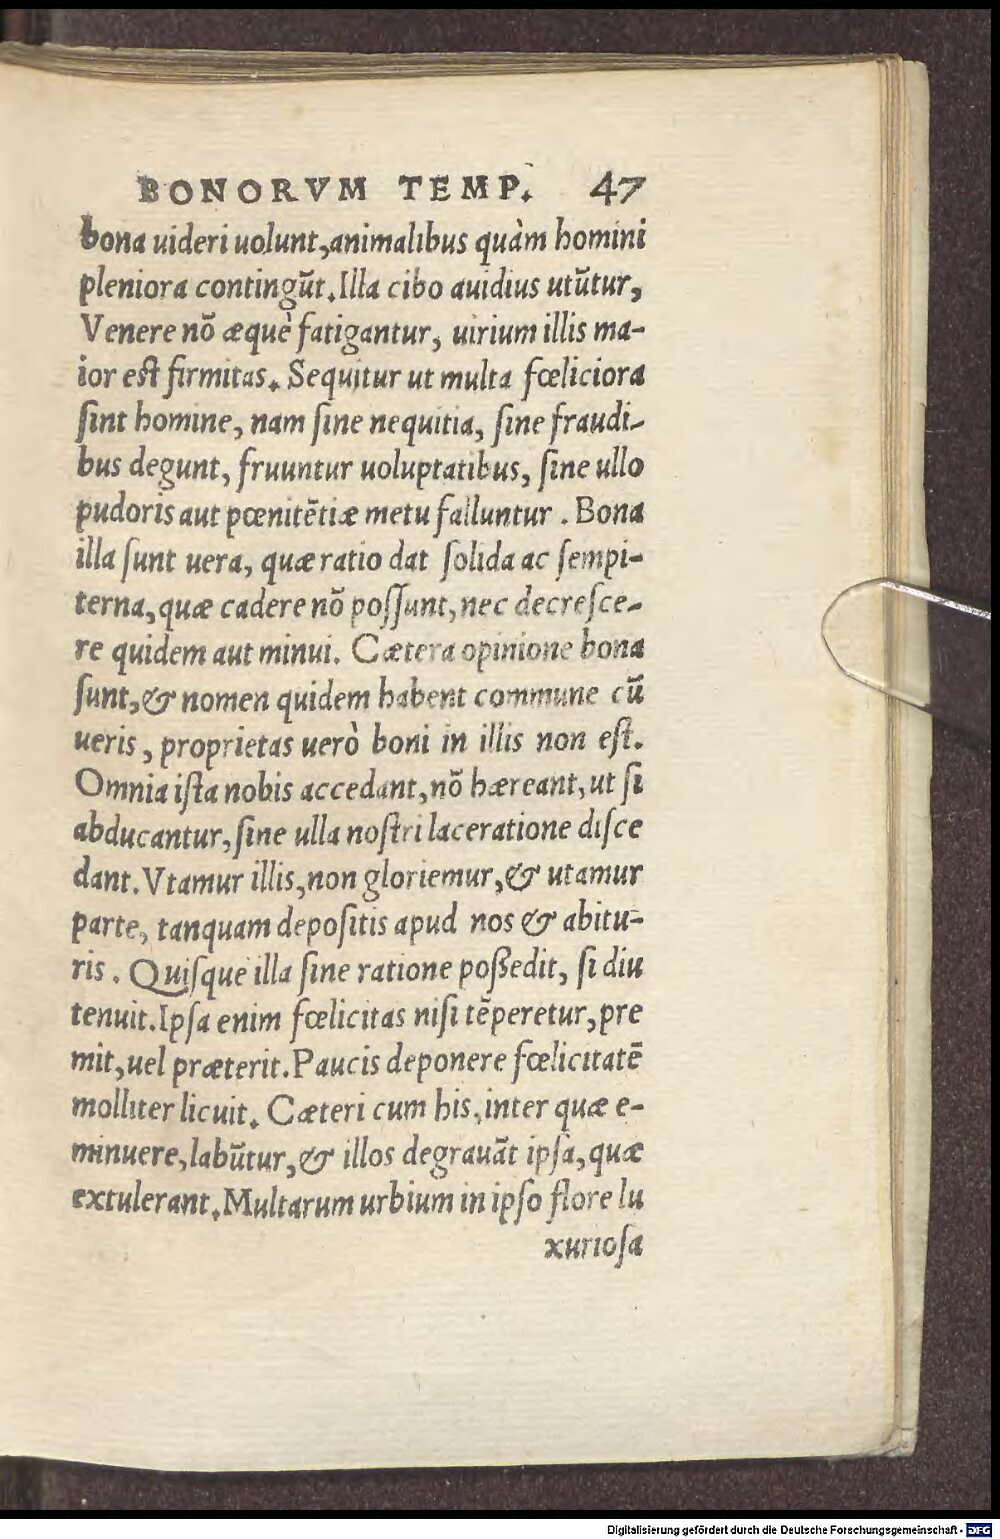 BONORVM TEMP. 47
bona uideri uolunt, animalibus quàm homini
pleniora contingūt. Illa cibo auidius utūtur,
Venere nō æquè fatigantur, uirium illis ma-
ior est firmitas. Sequitur ut multa fœliciora
ſint homine, nam ſine nequitia, ſine fraudi-
bus degunt, fruuntur uoluptatibus, ſine ullo
pudoris aut pœnitētiæ metu falluntur. Bona
illa ſunt uera, quæ ratio dat ſolida ac ſempi-
terna, quæ cadere nō poſſunt, nec decreſce-
re quidem aut minui. Cætera opinione bona
ſunt, & nomen quidem habent commune cū
ueris, proprietas uerò boni in illis non eſt.
Omnia iſta nobis accedant, nō hæreant, ut ſi
abducantur, ſine ulla noſtri laceratione diſce
dant. Vtamur illis, non gloriemur, & utamur
parte, tanquam depoſitis apud nos & abitu-
ris. Quiſque illa ſine ratione poßedit, ſi diu
tenuit. Ipſa enim fœlicitas niſi tēperetur, pre
mit, uel præterit. Paucis deponere fœlicitatē
molliter licuit. Cæteri cum his, inter quæ e-
minuere, labūtur, & illos degrauāt ipſa, quæ
extulerant. Multarum urbium in ipſo flore lu
xurioſa
Digitalisierung gefördert durch die Deutsche Forschungsgemeinschaft - DFG